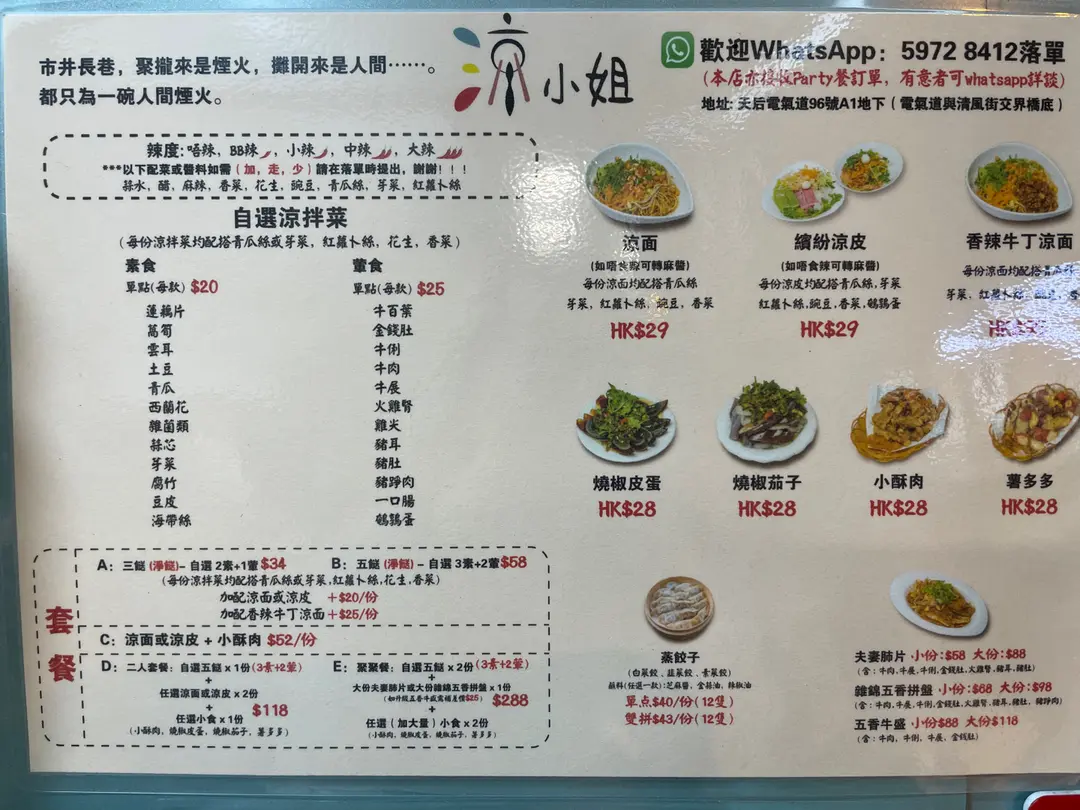 市井長巷，聚攏來是煙火，攤開來是人間……。
都只為一碗人間煙火。
涼小姐
歡迎WhatsApp：5972 8412落單
(本店亦接收Party餐訂單，有意者可whatsapp詳談)
地址: 天后電氣道96號A1地下（電氣道與清風街交界橋底）
辣度:唔辣，BB辣，小辣，中辣，大辣
***以下配菜或醬料如需（加，走，少）請在落單時提出，謝謝！！！
蒜水，醋，麻辣，香菜，花生，豌豆，青瓜絲，芽菜，紅蘿卜絲
自選涼拌菜
(每份涼拌菜均配搭青瓜絲或芽菜，紅蘿卜絲，花生，香菜)
素食
單點(每款) $20
蓮藕片
萵筍
雲耳
土豆
青瓜
西蘭花
雜菌類
蒜芯
芽菜
腐竹
豆皮
海帶絲
葷食
單點(每款) $25
牛百葉
金錢肚
牛俐
牛肉
牛展
火雞腎
雞尖
豬耳
豬肚
豬踭肉
一口腸
鵪鶉蛋
套餐
A：三餸(淨餸)– 自選 2素+1葷$34
B：五餸 (淨餸) – 自選 3素+2葷$58
(每份涼拌菜均配搭青瓜絲或芽菜,紅蘿卜絲,花生,香菜)
加配涼面或涼皮 +$20/份
加配香辣牛丁涼面 +$25/份
C：涼面或涼皮 + 小酥肉 $52/份
D：二人套餐：自選五餸 x 1份(3素+2葷)
+
任選涼面或涼皮 x 2份
+
任選小食 x 1份
$118
(小酥肉，燒椒皮蛋，燒椒茄子，薯多多)
E：聚聚餐：自選五餸 x 2份(3素+2葷)
+
大份夫妻肺片或大份雜錦五香拼盤 x 1份
$288
+
任選（加大量）小食 x 2份
(小酥肉，燒椒皮蛋，燒椒茄子，薯多多)
涼面
(如唔食辣可轉麻醬)
每份涼面均配搭青瓜絲
芽菜，紅蘿卜絲，豌豆，香菜
HK$29
繽紛涼皮
(如唔食辣可轉麻醬)
每份涼皮均配搭青瓜絲,芽菜
紅蘿卜絲,豌豆,香菜,鵪鶉蛋
HK$29
香辣牛丁涼面
每份涼面均配搭青瓜絲
芽菜，紅蘿卜絲，豌豆，香
燒椒皮蛋
HK$28
燒椒茄子
HK$28
小酥肉
HK$28
薯多多
HK$28
蒸餃子
(白菜餃、韮菜餃、素菜餃)
蘸料(任選一款):芝麻醬，金蒜油，辣椒油
單点$40/份(12隻)
雙拼$43/份(12隻)
夫妻肺片 小份:$58 大份:$88
(含：牛肉,牛展,牛俐,金錢肚,火雞腎,豬耳,豬肚)
雜錦五香拼盤 小份:$68 大份:$98
(含：牛肉,牛展,牛俐,金錢肚,火雞腎,豬耳,豬肚，豬踭肉)
五香牛盛 小份$88 大份$118
(含：牛肉，牛俐，牛展，金錢肚)